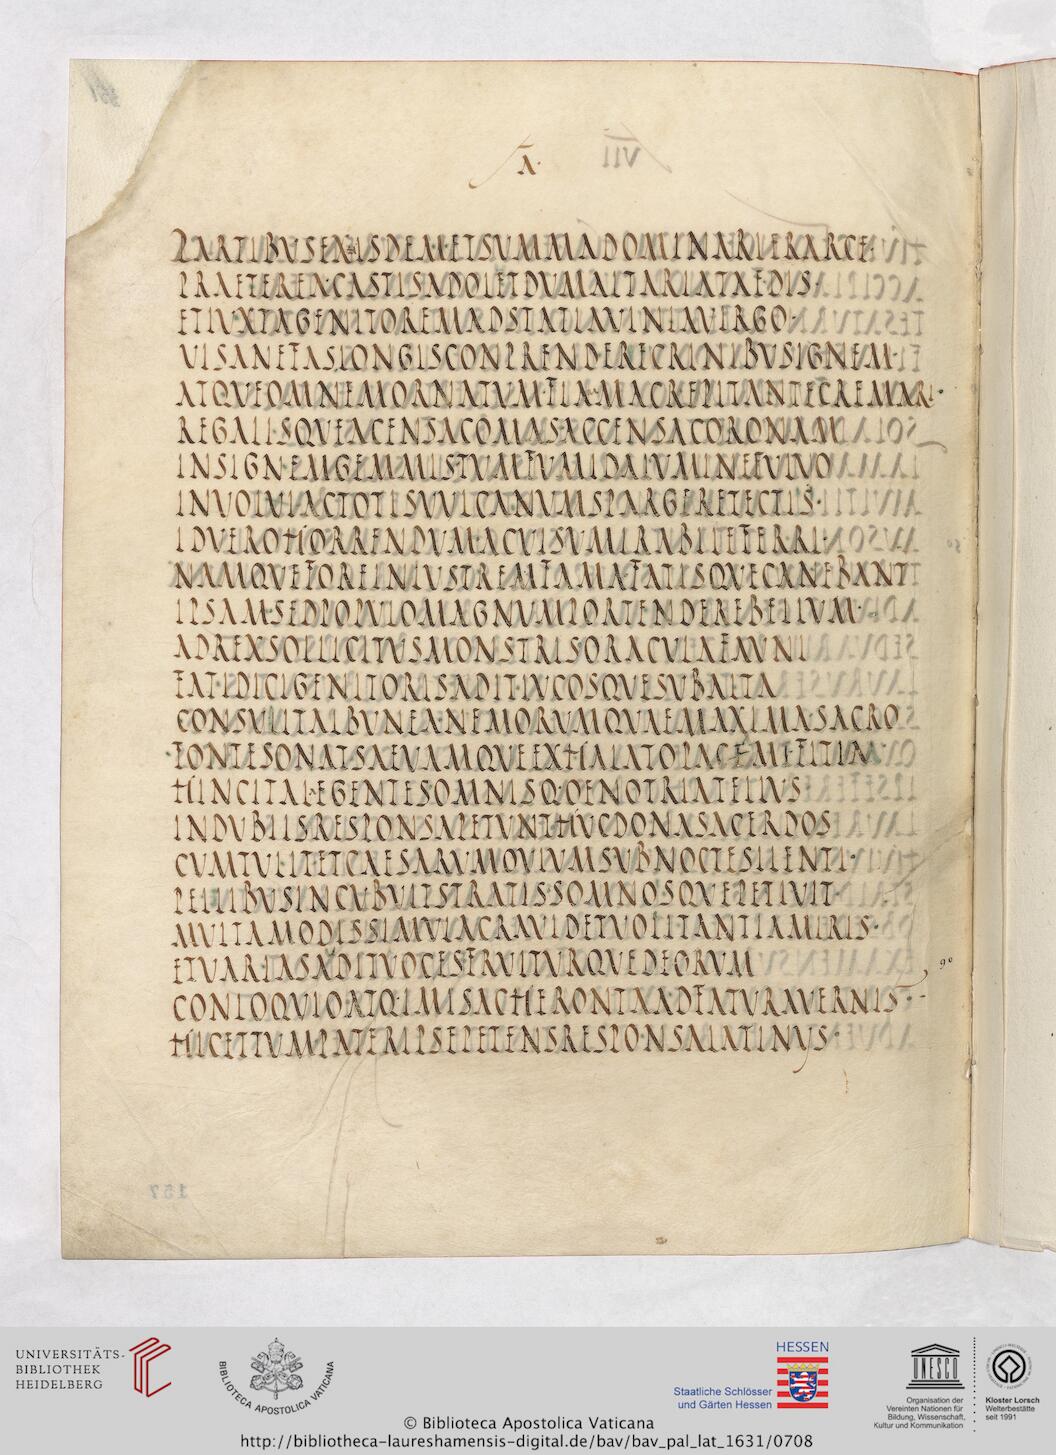 A
PARTIBUSEXISDEMETSUMMADOMINARIERARCE
PRAETEREACASTISADOLETDUMALTARIATAEDIS
ETIUXTAGENITOREMADSTATLAVINIAVIRGO
VISANEFASLONGISCONPRENDERECRINIBUSIGNEM
ATQUEOMNEMORNATUMFLAMMACREPITANTECREMARI
REGALISQUEACENSACOMASACCENSACORONAM
INSIGNEMGEMMISTUMFUMIDALUMINEFULVO
INVOLVIACTOTISVULCANUMSPARGERETECTIS
IDVEROHORRENDUMACVISUMIRABILEFERRI
NAMQUEFOREINLUSTREMFAMAFATISQUECANEBANT
IPSAMSEDPOPULOMAGNUMPORTENDEREBELLUM
ADREXSOLLICITUSMONSTRISORACULAFAUNI
FATIDICIGENITORISADITLUCOSQUESUBALTA
CONSULITALBUNEANEMORUMQUAEMAXIMASACRO
FONTESONATSAEVAMQUEEXHALATOPACAMEFITIM
HINCITALAEGENTESOMNISQ·OENOTRIATELLUS
INDUBIISRESPONSAPETUNTHUCDONASACERDOS
CUMTULITETCAESARUMOVIUMSUBNOCTESILENTI
PELLIBUSINCUBUITSTRATISSOMNOSQUEPETIVIT
MULTAMODISSIMULACRAVIDETVOLITANTIAMIRIS
ETVARIASADITVOCESFRUITURQUEDEORUM
CONLOQUIOATQ·IMISACHERONTAADFATURAVERNIS
HICETTUMPATERIPSEPETENSRESPONSALATINUS
90
157
UNIVERSITÄTS-
BIBLIOTHEK
HEIDELBERG
BIBLIOTECA APOSTOLICA VATICANA
HESSEN
Staatliche Schlösser
und Gärten Hessen
UNESCO
Organisation der
Vereinten Nationen für
Bildung, Wissenschaft,
Kultur und Kommunikation
Kloster Lorsch
Welterbestätte
seit 1991
© Biblioteca Apostolica Vaticana
http://bibliotheca-laureshamensis-digital.de/bav/bav_pal_lat_1631/0708